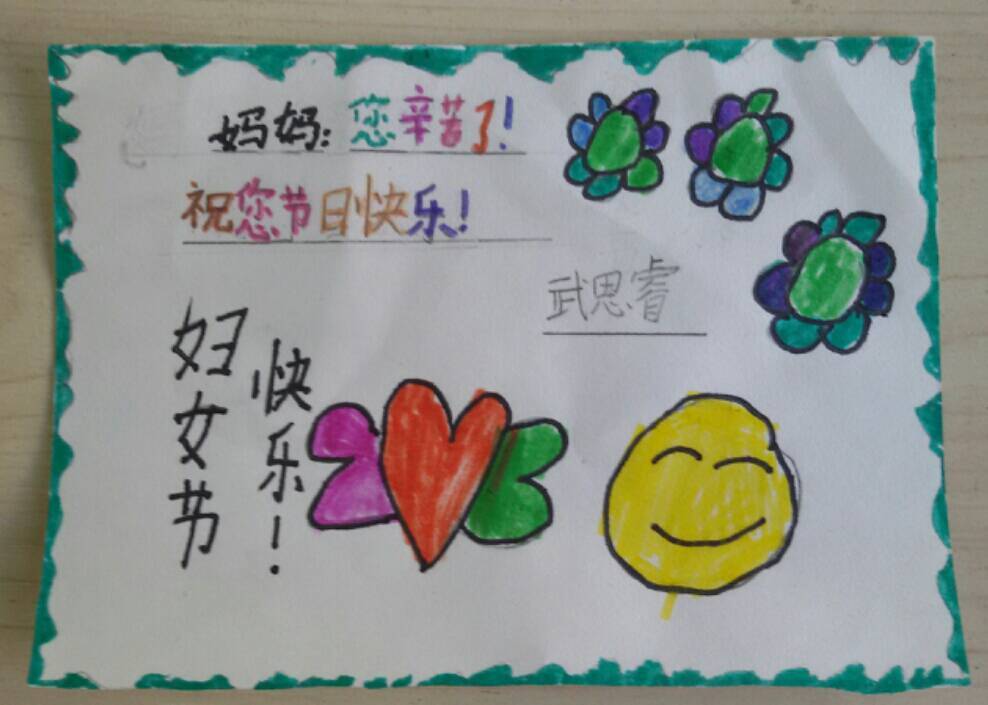 妈妈：您辛苦了！
祝您节日快乐！
武思睿
妇女节
快乐！